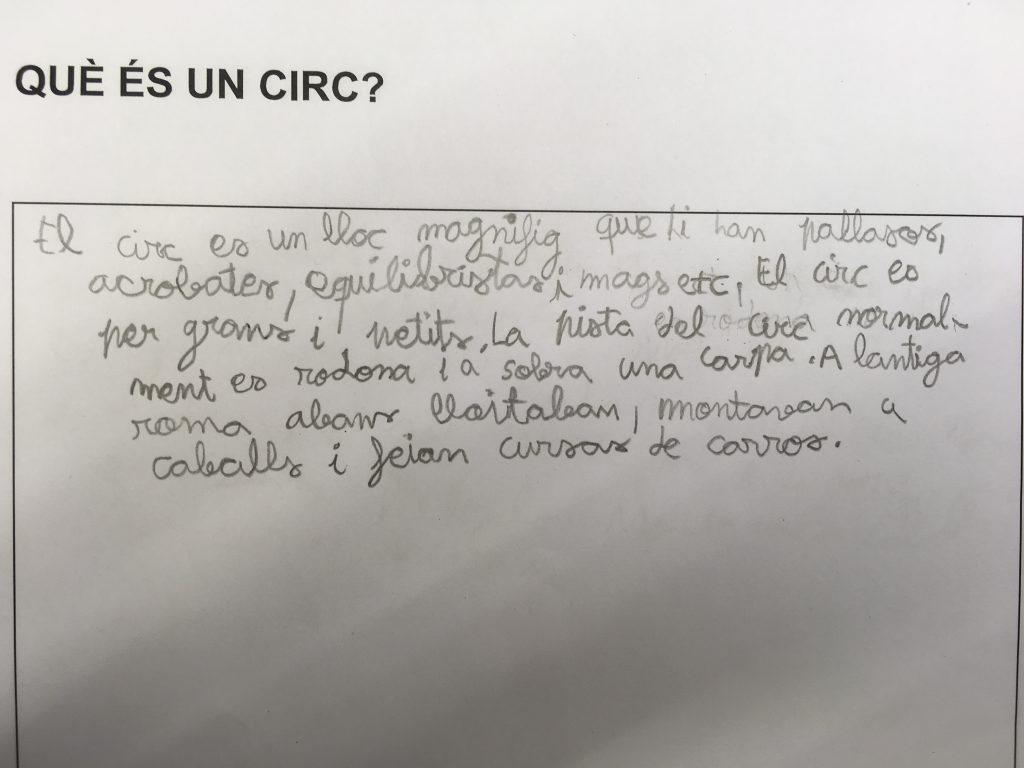 QUÈ ÉS UN CIRC?
El circ es un lloc magnifig que ti han pallasos,
acrobates, equilibristas i mags etc, El circ es
per grans i petits. La pista del circ normal-
ment es rodona i a sobra una carpa. A lantiga
roma abans lloitaban, montavan a
caballs i feian cursas de carros.